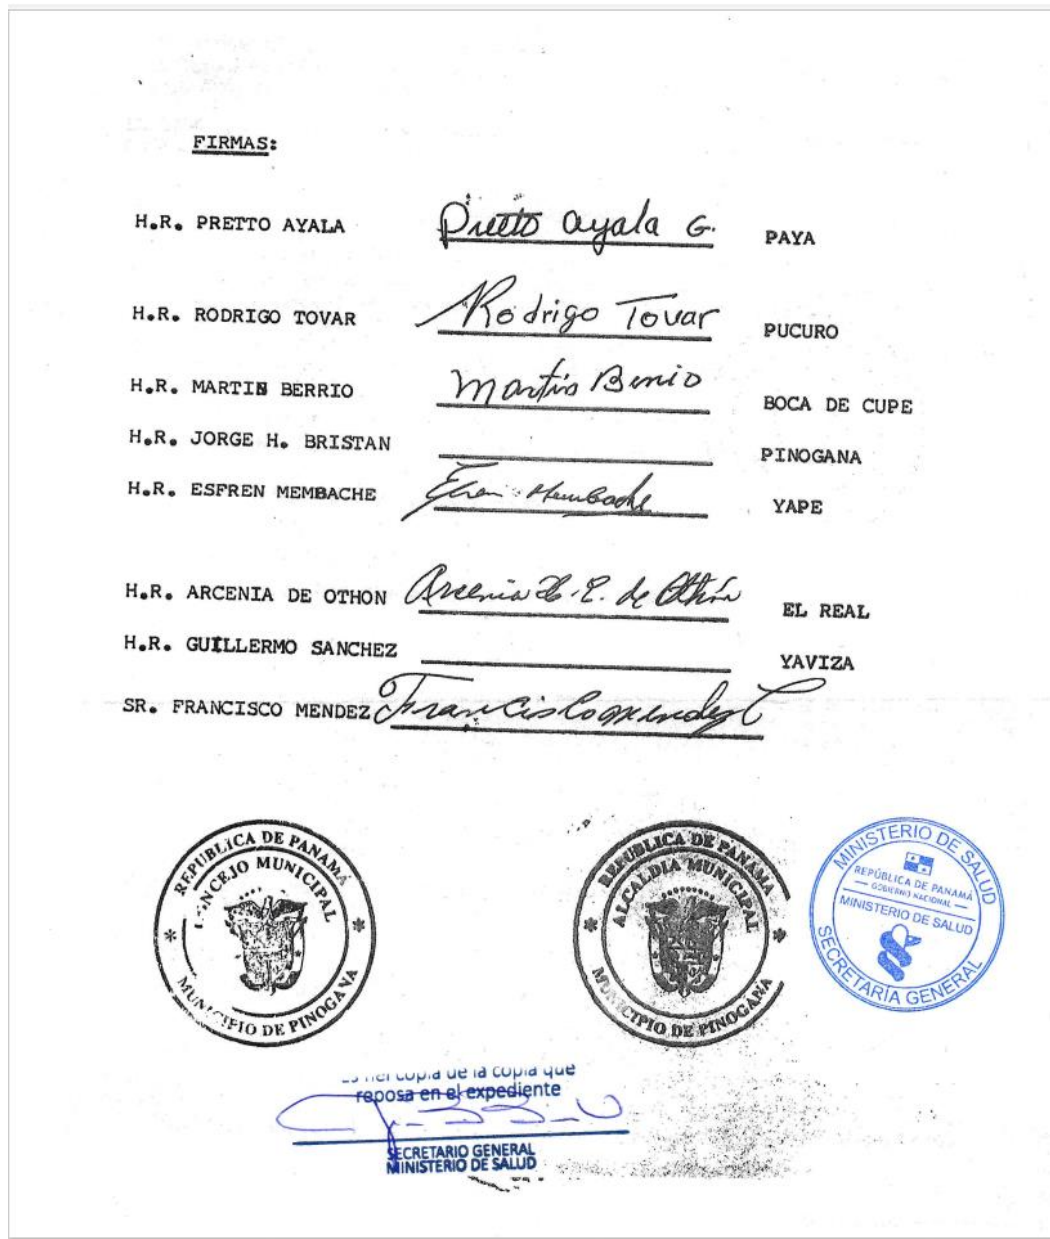 FIRMAS:
H.R. PRETTO AYALA Pretto Ayala G. PAYA
H.R. RODRIGO TOVAR Rodrigo Tovar PUCURO
H.R. MARTIN BERRIO Martin Berrio BOCA DE CUPE
H.R. JORGE H. BRISTAN PINOGANA
H.R. ESFREN MEMBACHE Efren Membache YAPE
H.R. ARCENIA DE OTHON Arcenia de Othón EL REAL
H.R. GUILLERMO SANCHEZ YAVIZA
SR. FRANCISCO MENDEZ Francisco Mendez
REPUBLICA DE PANAMA
CONCEJO MUNICIPAL
MUNICIPIO DE PINOGANA
REPUBLICA DE PANAMA
ALCALDIA MUNICIPAL
MUNICIPIO DE PINOGANA
MINISTERIO DE SALUD
REPÚBLICA DE PANAMÁ
— GOBIERNO NACIONAL —
MINISTERIO DE SALUD
SECRETARÍA GENERAL
Es fiel copia de la copia que
reposa en el expediente
SECRETARIO GENERAL
MINISTERIO DE SALUD